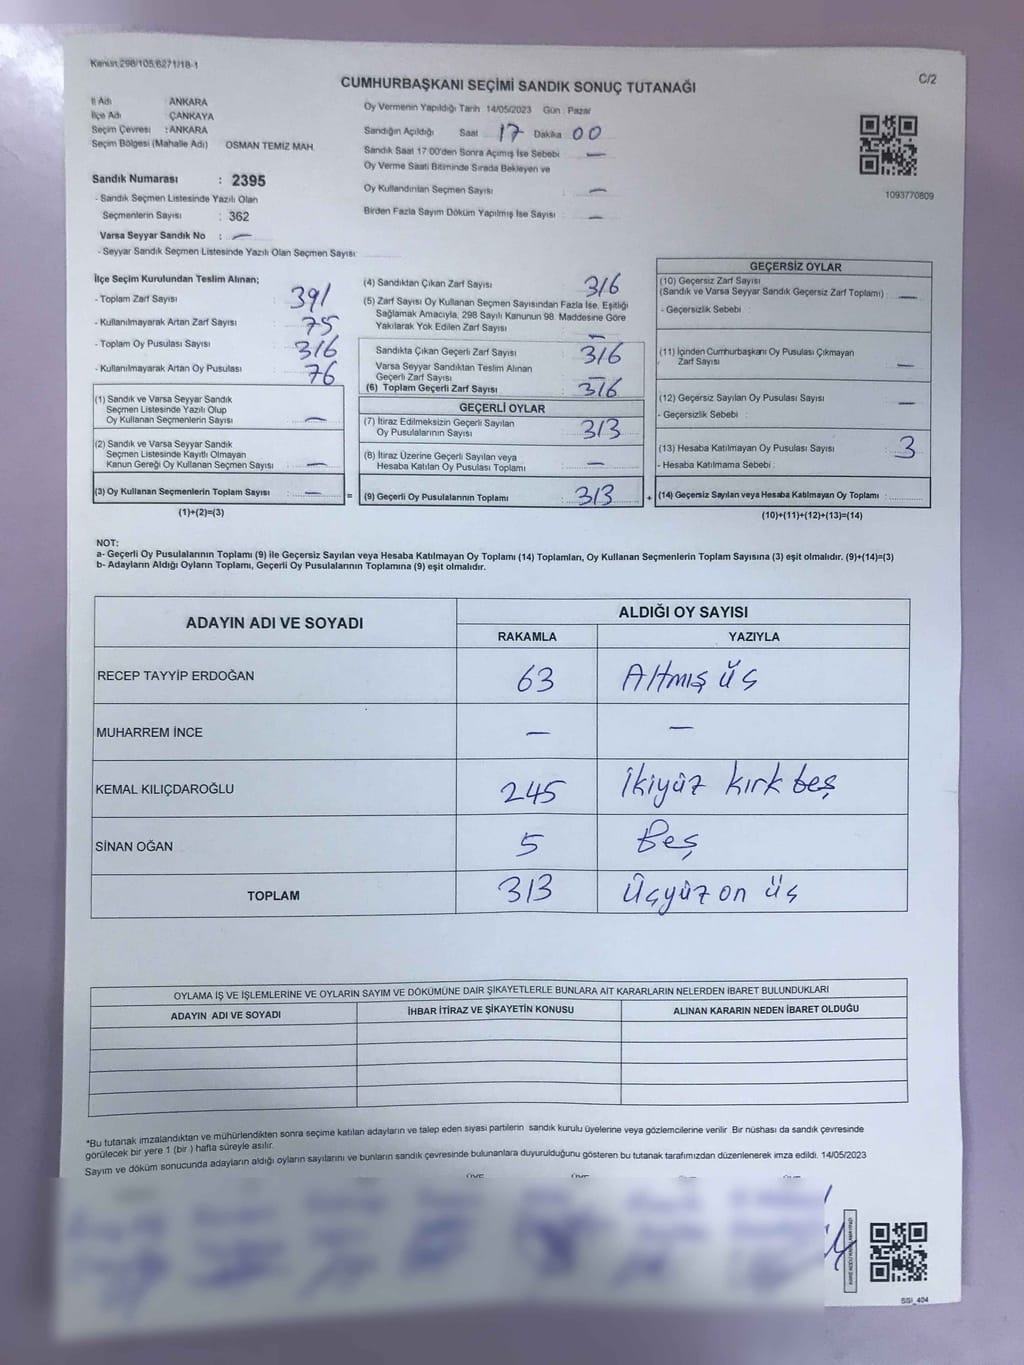 Kanun:298/105,6271/18-1
C/2
CUMHURBAŞKANI SEÇİMİ SANDIK SONUÇ TUTANAĞI
İl Adı ANKARA
İlçe Adı ÇANKAYA
Seçim Çevresi : ANKARA
Seçim Bölgesi (Mahalle Adı) OSMAN TEMİZ MAH.
Sandık Numarası : 2395
- Sandık Seçmen Listesinde Yazılı Olan
Seçmenlerin Sayısı : 362
Varsa Seyyar Sandık No : —
- Seyyar Sandık Seçmen Listesinde Yazılı Olan Seçmen Sayısı:
Oy Vermenin Yapıldığı Tarih 14/05/2023 Gün : Pazar
Sandığın Açıldığı Saat 17 Dakika 00
Sandık Saat 17:00'den Sonra Açımış İse Sebebi —
Oy Verme Saati Bitiminde Sırada Bekleyen ve
Oy Kullandırılan Seçmen Sayısı : —
Birden Fazla Sayım Döküm Yapılmış İse Sayısı : —
1093770809
İlçe Seçim Kurulundan Teslim Alınan;
- Toplam Zarf Sayısı : 391
- Kullanılmayarak Artan Zarf Sayısı : 75
- Toplam Oy Pusulası Sayısı : 316
- Kullanılmayarak Artan Oy Pusulası : 76
(1) Sandık ve Varsa Seyyar Sandık
Seçmen Listesinde Yazılı Olup
Oy Kullanan Seçmenlerin Sayısı : —
(2) Sandık ve Varsa Seyyar Sandık
Seçmen Listesinde Kayıtlı Olmayan
Kanun Gereği Oy Kullanan Seçmen Sayısı : —
(3) Oy Kullanan Seçmenlerin Toplam Sayısı : —
(1)+(2)=(3)
=
(4) Sandıktan Çıkan Zarf Sayısı : 316
(5) Zarf Sayısı Oy Kullanan Seçmen Sayısından Fazla İse, Eşitliği
Sağlamak Amacıyla, 298 Sayılı Kanunun 98. Maddesine Göre
Yakılarak Yok Edilen Zarf Sayısı : —
Sandıkta Çıkan Geçerli Zarf Sayısı : 316
Varsa Seyyar Sandıktan Teslim Alınan
Geçerli Zarf Sayısı : —
(6) Toplam Geçerli Zarf Sayısı : 316
GEÇERLİ OYLAR
(7) İtiraz Edilmeksizin Geçerli Sayılan
Oy Pusulalarının Sayısı : 313
(8) İtiraz Üzerine Geçerli Sayılan veya
Hesaba Katılan Oy Pusulası Toplamı : —
(9) Geçerli Oy Pusulalarının Toplamı : 313
+
GEÇERSİZ OYLAR
(10) Geçersiz Zarf Sayısı
(Sandık ve Varsa Seyyar Sandık Geçersiz Zarf Toplamı) : —
- Geçersizlik Sebebi :
(11) İçinden Cumhurbaşkanı Oy Pusulası Çıkmayan
Zarf Sayısı : —
(12) Geçersiz Sayılan Oy Pusulası Sayısı : —
- Geçersizlik Sebebi :
(13) Hesaba Katılmayan Oy Pusulası Sayısı : 3
- Hesaba Katılmama Sebebi :
(14) Geçersiz Sayılan veya Hesaba Katılmayan Oy Toplamı :
(10)+(11)+(12)+(13)=(14)
NOT:
a- Geçerli Oy Pusulalarının Toplamı (9) ile Geçersiz Sayılan veya Hesaba Katılmayan Oy Toplamı (14) Toplamları, Oy Kullanan Seçmenlerin Toplam Sayısına (3) eşit olmalıdır. (9)+(14)=(3)
b- Adayların Aldığı Oyların Toplamı, Geçerli Oy Pusulalarının Toplamına (9) eşit olmalıdır.
ADAYIN ADI VE SOYADI
ALDIĞI OY SAYISI
RAKAMLA YAZIYLA
RECEP TAYYİP ERDOĞAN 63 Altmış üç
MUHARREM İNCE — —
KEMAL KILIÇDAROĞLU 245 İkiyüz kırk beş
SİNAN OĞAN 5 Beş
TOPLAM 313 Üçyüz on üç
OYLAMA İŞ VE İŞLEMLERİNE VE OYLARIN SAYIM VE DÖKÜMÜNE DAİR ŞİKAYETLERLE BUNLARA AİT KARARLARIN NELERDEN İBARET BULUNDUKLARI
ADAYIN ADI VE SOYADI İHBAR İTİRAZ VE ŞİKAYETİN KONUSU ALINAN KARARIN NEDEN İBARET OLDUĞU
*Bu tutanak imzalandıktan ve mühürlendikten sonra seçime katılan adayların ve talep eden siyasi partilerin sandık kurulu üyelerine veya gözlemcilerine verilir Bir nüshası da sandık çevresinde
görülecek bir yere 1 (bir ) hafta süreyle asılır.
Sayım ve döküm sonucunda adayların aldığı oyların sayılarını ve bunların sandık çevresinde bulunanlara duyurulduğunu gösteren bu tutanak tarafımızdan düzenlenerek imza edildi. 14/05/2023
SSI_404